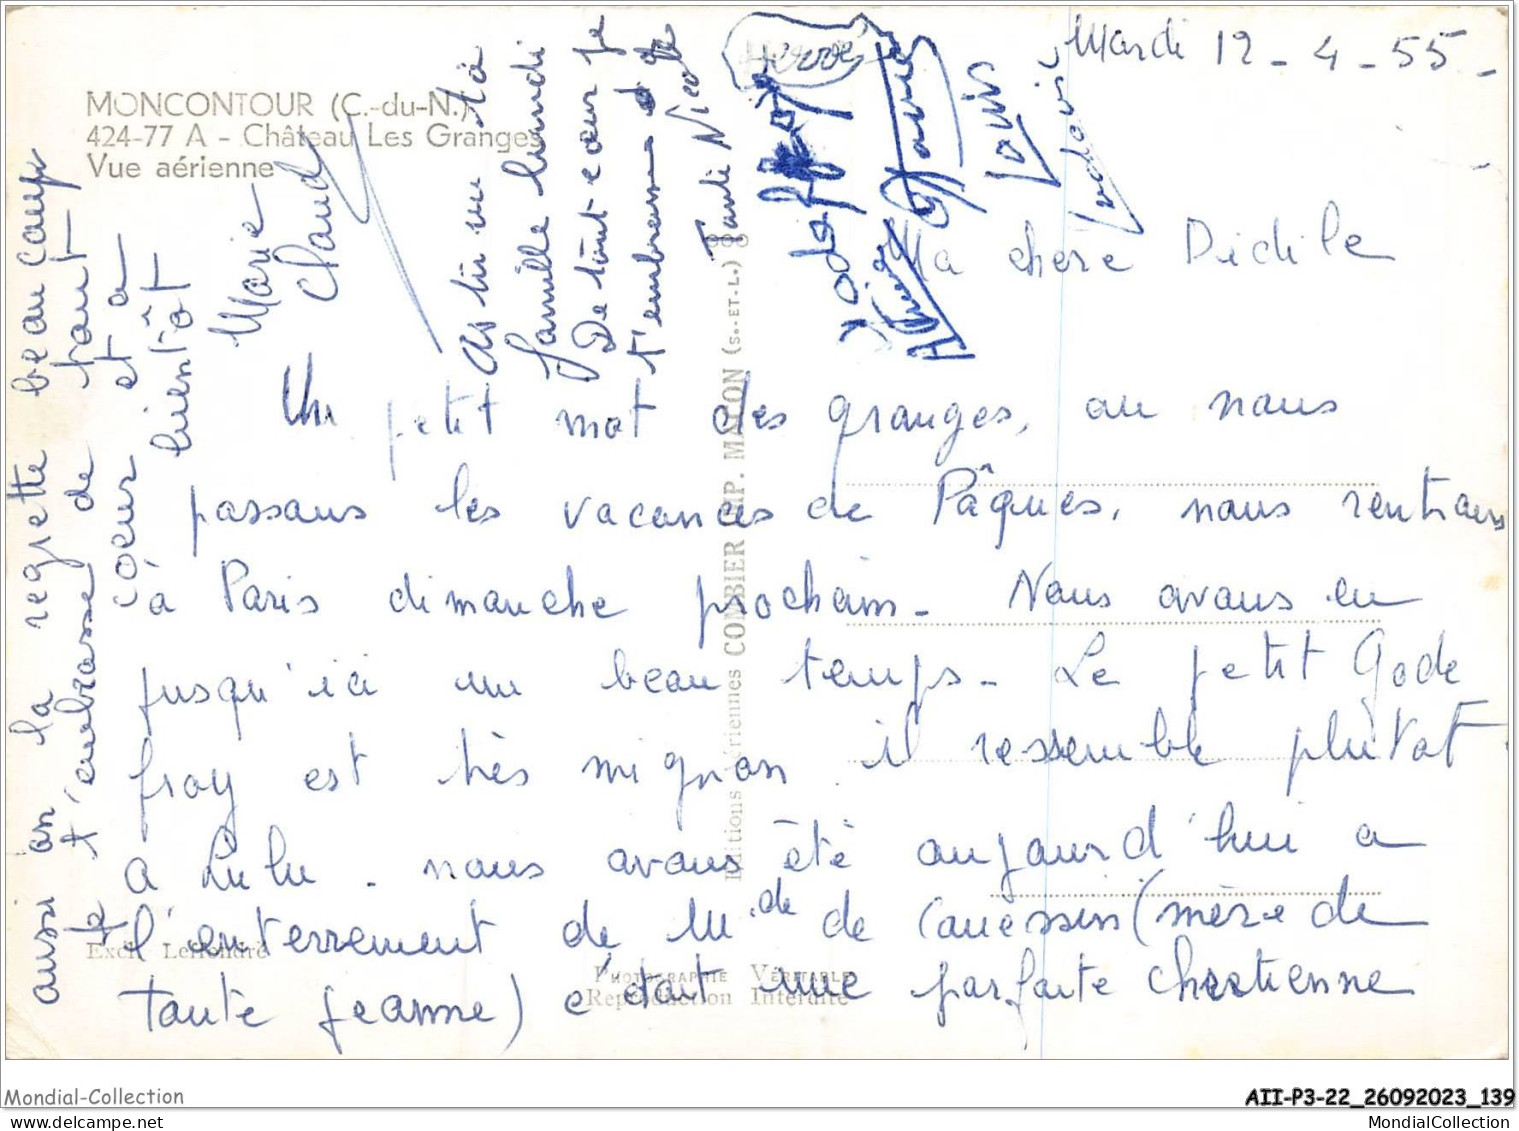 Mardi 12-4-55-
MONCONTOUR (C.-du-N.)
424-77 A - Château Les Granges
Vue aérienne
Ma chère Didile
Un petit mot des granges, ou nous
passons les vacances de Pâques, nous rentrons
à Paris dimanche prochain- Nous avons eu
jusqu'ici un beau temps- Le petit Gode
froy est très mignon il ressemble plutot
a Lulu. nous avons été aujourd'hui a
l'enterrement de Mde de Cauessin (mère de
tante Jeanne) c'était une parfaite chretienne
aussi on la regrette beaucoup
je t'embrasse de tout
coeur et a
bientôt
Marie
Claude
As tu vu ta
famille lundi
De tout coeur je
t'embrasse
Tante Nicole
Hervé
Louis
Ludovic
Editions aériennes COMBIER IMP. MACON (S.-ET-L.)
Excl. Leffondré
PHOTOGRAPHIE VÉRITABLE
Reproduction Interdite
Mondial-Collection
AII-P3-22_26092023_139
www.mondial-collection.com
MondialCollection